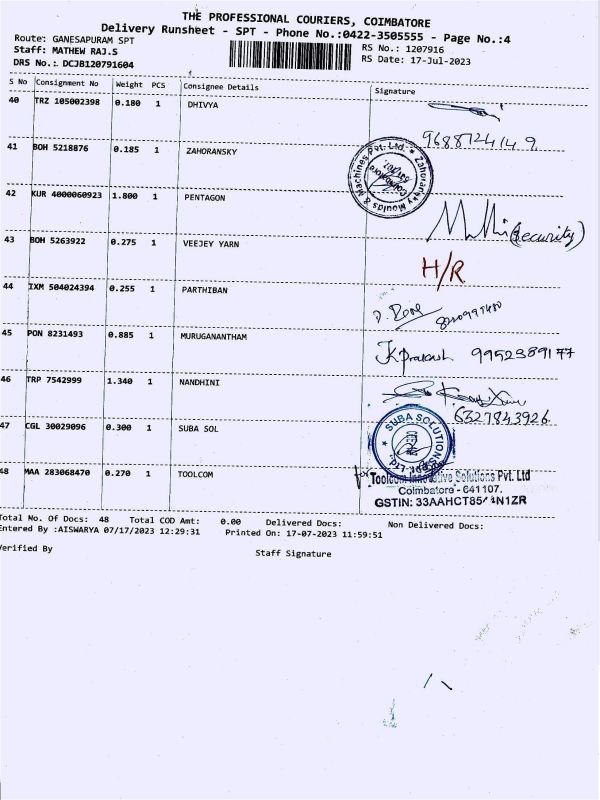 THE PROFESSIONAL COURIERS, COIMBATORE
Delivery Runsheet - SPT - Phone No.:0422-3505555 - Page No.:4
Route: GANESAPURAM SPT
RS No.: 1207916
Staff: MATHEW RAJ.S
RS Date: 17-Jul-2023
DRS No.: DCJB120791604
S No Consignment No Weight PCS Consignee Details Signature
40 TRZ 105002398 0.180 1 DHIVYA
9688124149
41 BOH 5218876 0.185 1 ZAHORANSKY
Zahoransky Moulds & Machines Pvt. Ltd.
42 KUR 4000060923 1.800 1 PENTAGON
(Security)
43 BOH 5263922 0.275 1 VEEJEY YARN
H/R
44 IXM 504024394 0.255 1 PARTHIBAN
45 PON 8231493 0.885 1 MURUGANANTHAM
K Prakash 9952389177
46 TRP 7542999 1.340 1 NANDHINI
6327843926
47 CGL 30029096 0.300 1 SUBA SOL
SUBA SOLUTIONS
48 MAA 283068470 0.270 1 TOOLCOM
for Toolcom Innovative Solutions Pvt. Ltd
Coimbatore - 641107.
GSTIN: 33AAHCT85 1N1ZR
Total No. Of Docs: 48 Total COD Amt: 0.00 Delivered Docs: Non Delivered Docs:
Entered By :AISWARYA 07/17/2023 12:29:31 Printed On: 17-07-2023 11:59:51
Verified By
Staff Signature